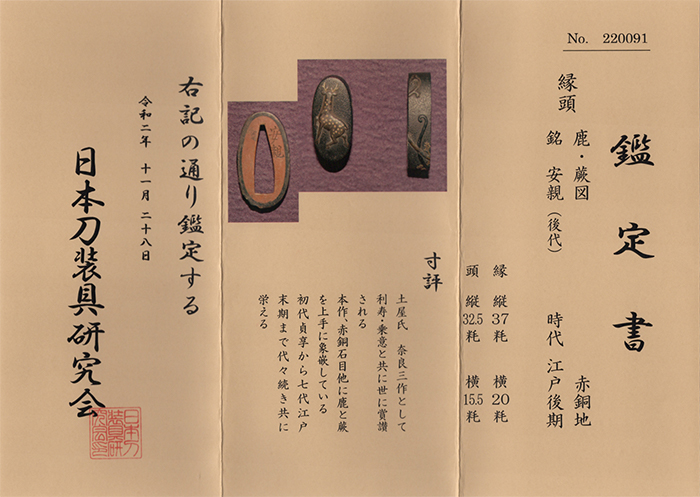 No. 220091
鑑定書
縁頭 鹿・蕨図 赤銅地
銘 安親(後代) 時代 江戸後期
縁 縦37粍 横20粍
頭 縦32.5粍 横15.5粍
寸評
土屋氏 奈良三作として
利寿・乗意と共に世に賞讃
される
本作、赤銅石目他に鹿と蕨
を上手に象嵌している
初代貞享から七代江戸
末期まで代々続き共に
栄える
安親
右記の通り鑑定する
令和二年 十一月 二十八日
日本刀装具研究会